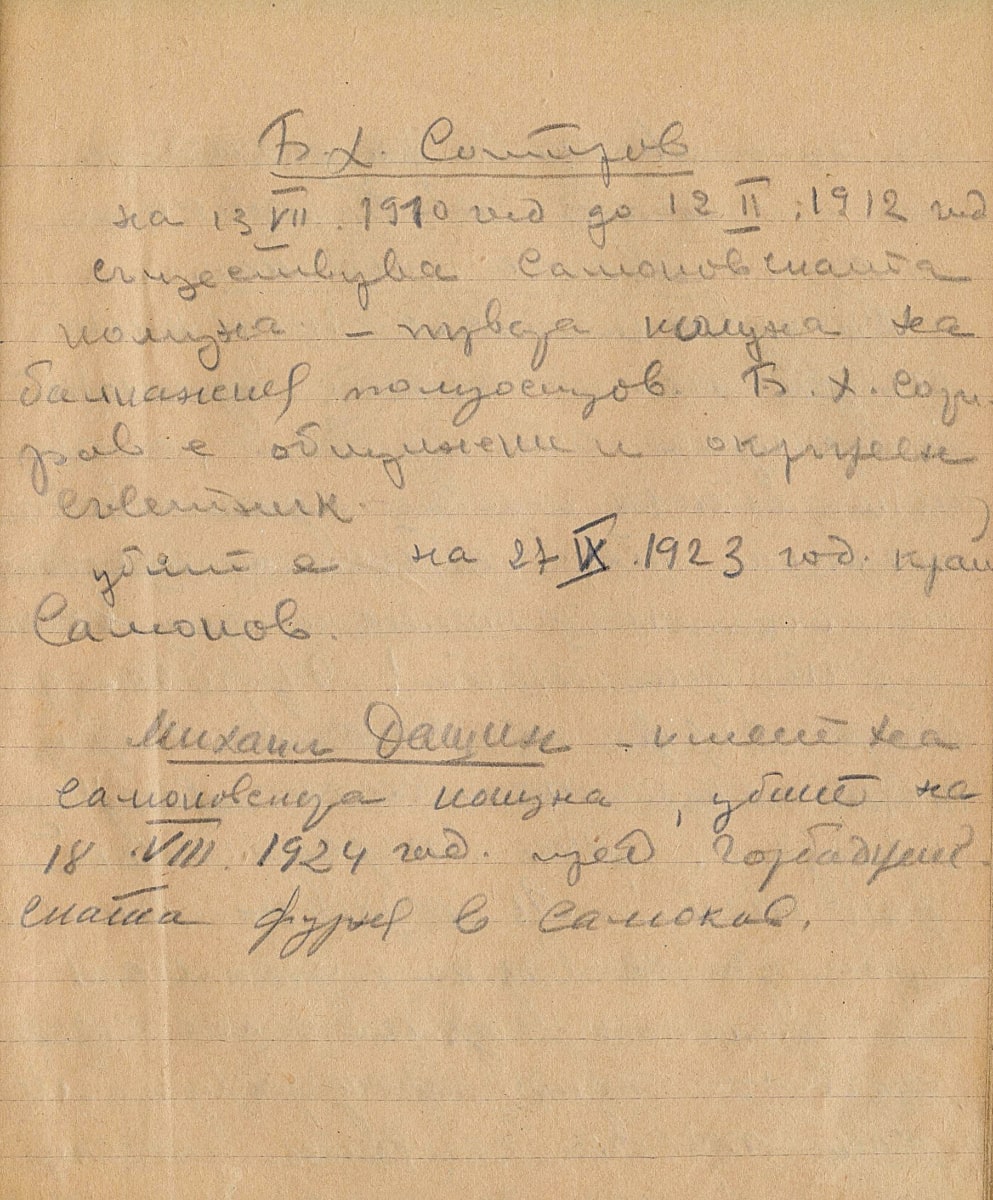 Б. Х. Сотиров
на 13 VII. 1910 год до 12 II. 1912 год
съществува Самоковската
комуна – първа комуна на
балкански полуостров. Б. Х. Соти-
ров е общински и окръжен
съветник.
убит е на 27 IX. 1923 год. край
Самоков.
Михаил Дашин – кмет на
самоковската комуна, убит на
18 VIII. 1924 год. пред
ската фурна в Самоков.